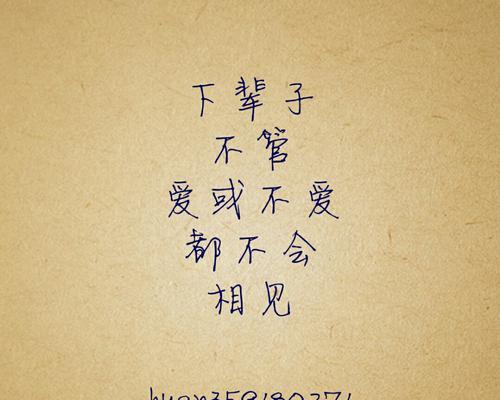 下辈子
不管
爱或不爱
都不会
相见